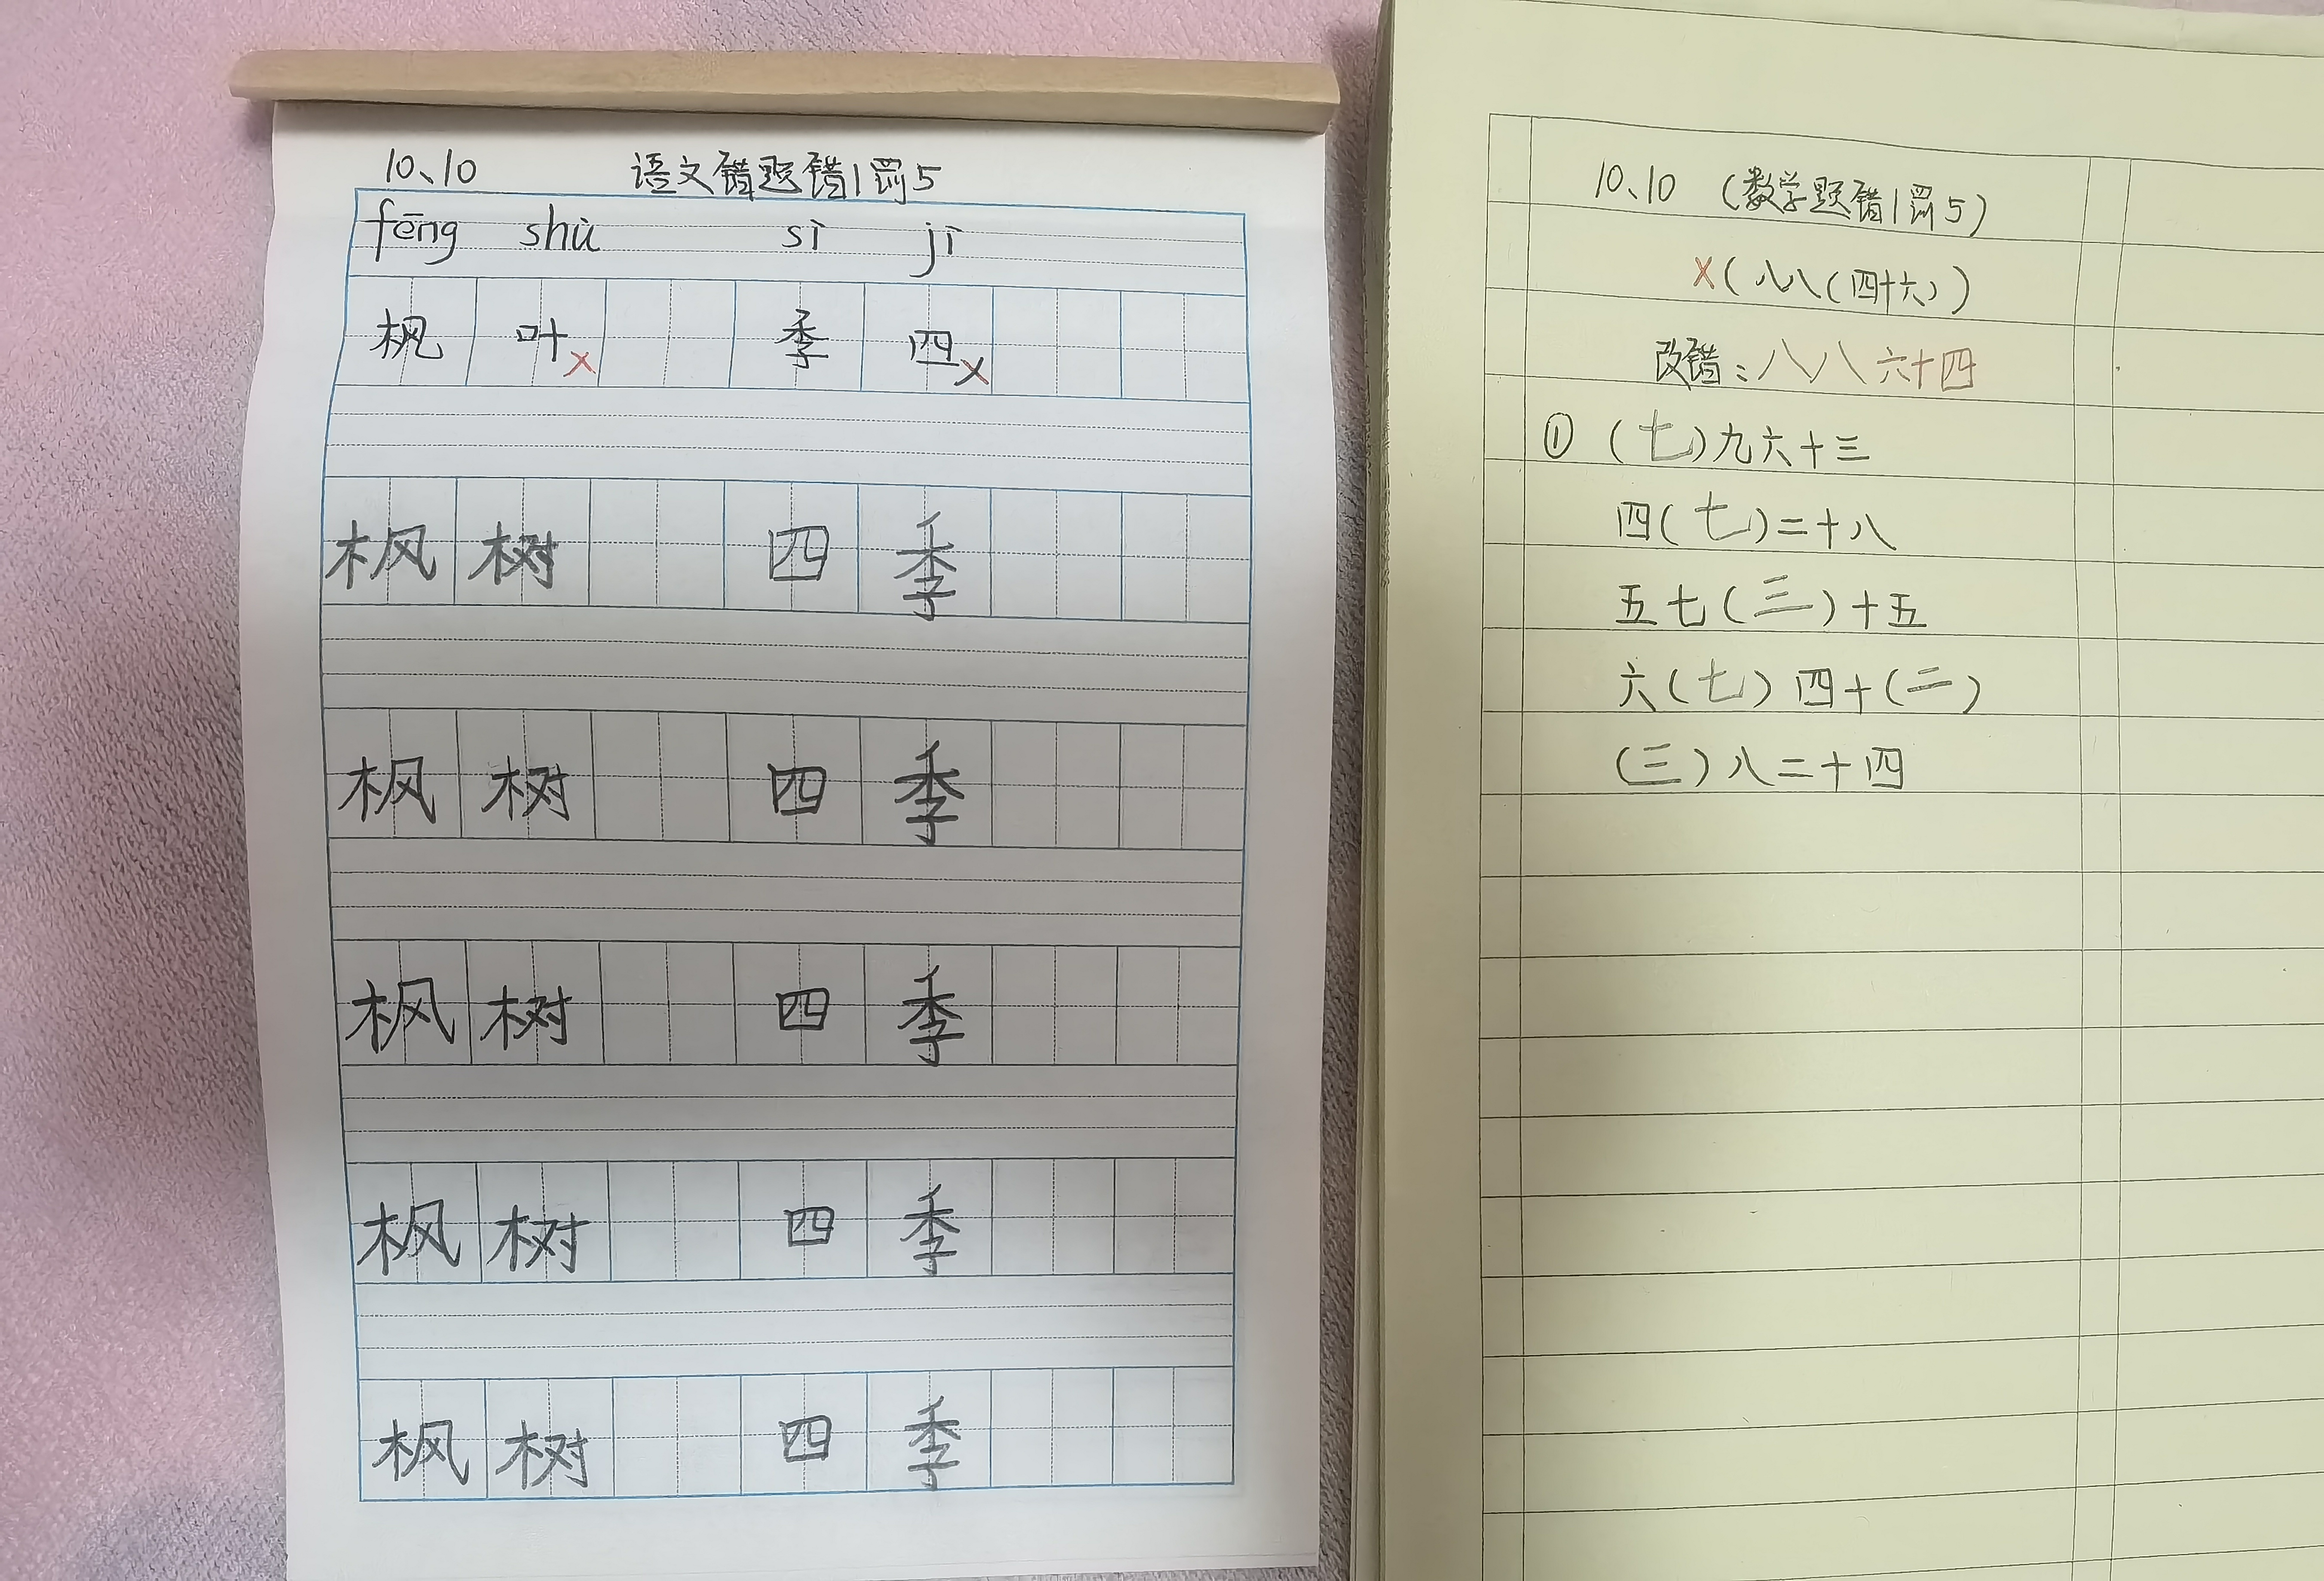 10、10 语文错题错1罚5
fēng shù sì jì
枫 叶 × 季 四 ×
枫 树 四 季
枫 树 四 季
枫 树 四 季
枫 树 四 季
枫 树 四 季
10、10 (数学题错1罚5)
×(八八(四十六))
改错:八八六十四
① (七)九六十三
四(七)二十八
五七(三)十五
六(七)四十(二)
(三)八二十四